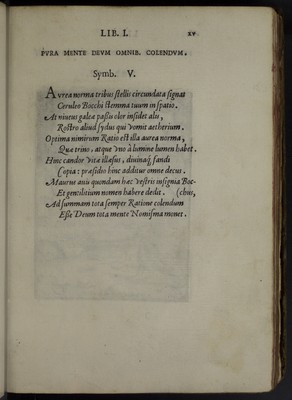 LIB. I. xv
PVRA MENTE DEVM OMNIB. COLENDVM.
Symb. V.
Aurea norma tribus stellis circundata signat
Ceruleo Bocchi stemma tuum in spatio.
At niueus galeæ passis olor insidet alis,
Rostro aliud sydus qui vomit aetherium.
Optima nimirum Ratio est illa aurea norma,
Quæ trino, atque vno à lumine lumen habet.
Hinc candor vitæ illæsus, diuinaq́; fandi
Copia: præsidio hinc additur omne decus.
Maurus auis quondam hæc vestris insignia Boc-
Et gentilitium nomen habere dedit. (chus,
Ad summam tota semper Ratione colendum
Esse Deum tota mente Nomisma monet.